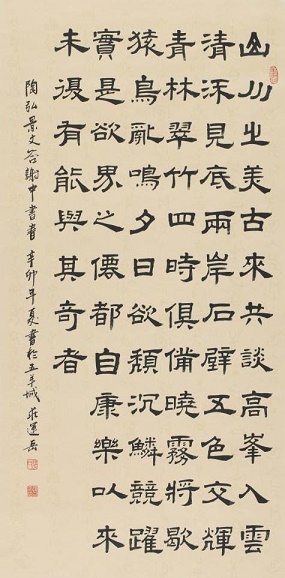 山川之美古來共談高峯入雲
清流見底兩岸石壁五色交輝
青林翠竹四時俱備曉霧將歇
猿鳥亂鳴夕日欲頹沉鱗競躍
實是欲界之僊都自康樂以來
未復有能與其奇者
陶弘景文答謝中書書 辛卯年夏書於五羊城 莊運岳